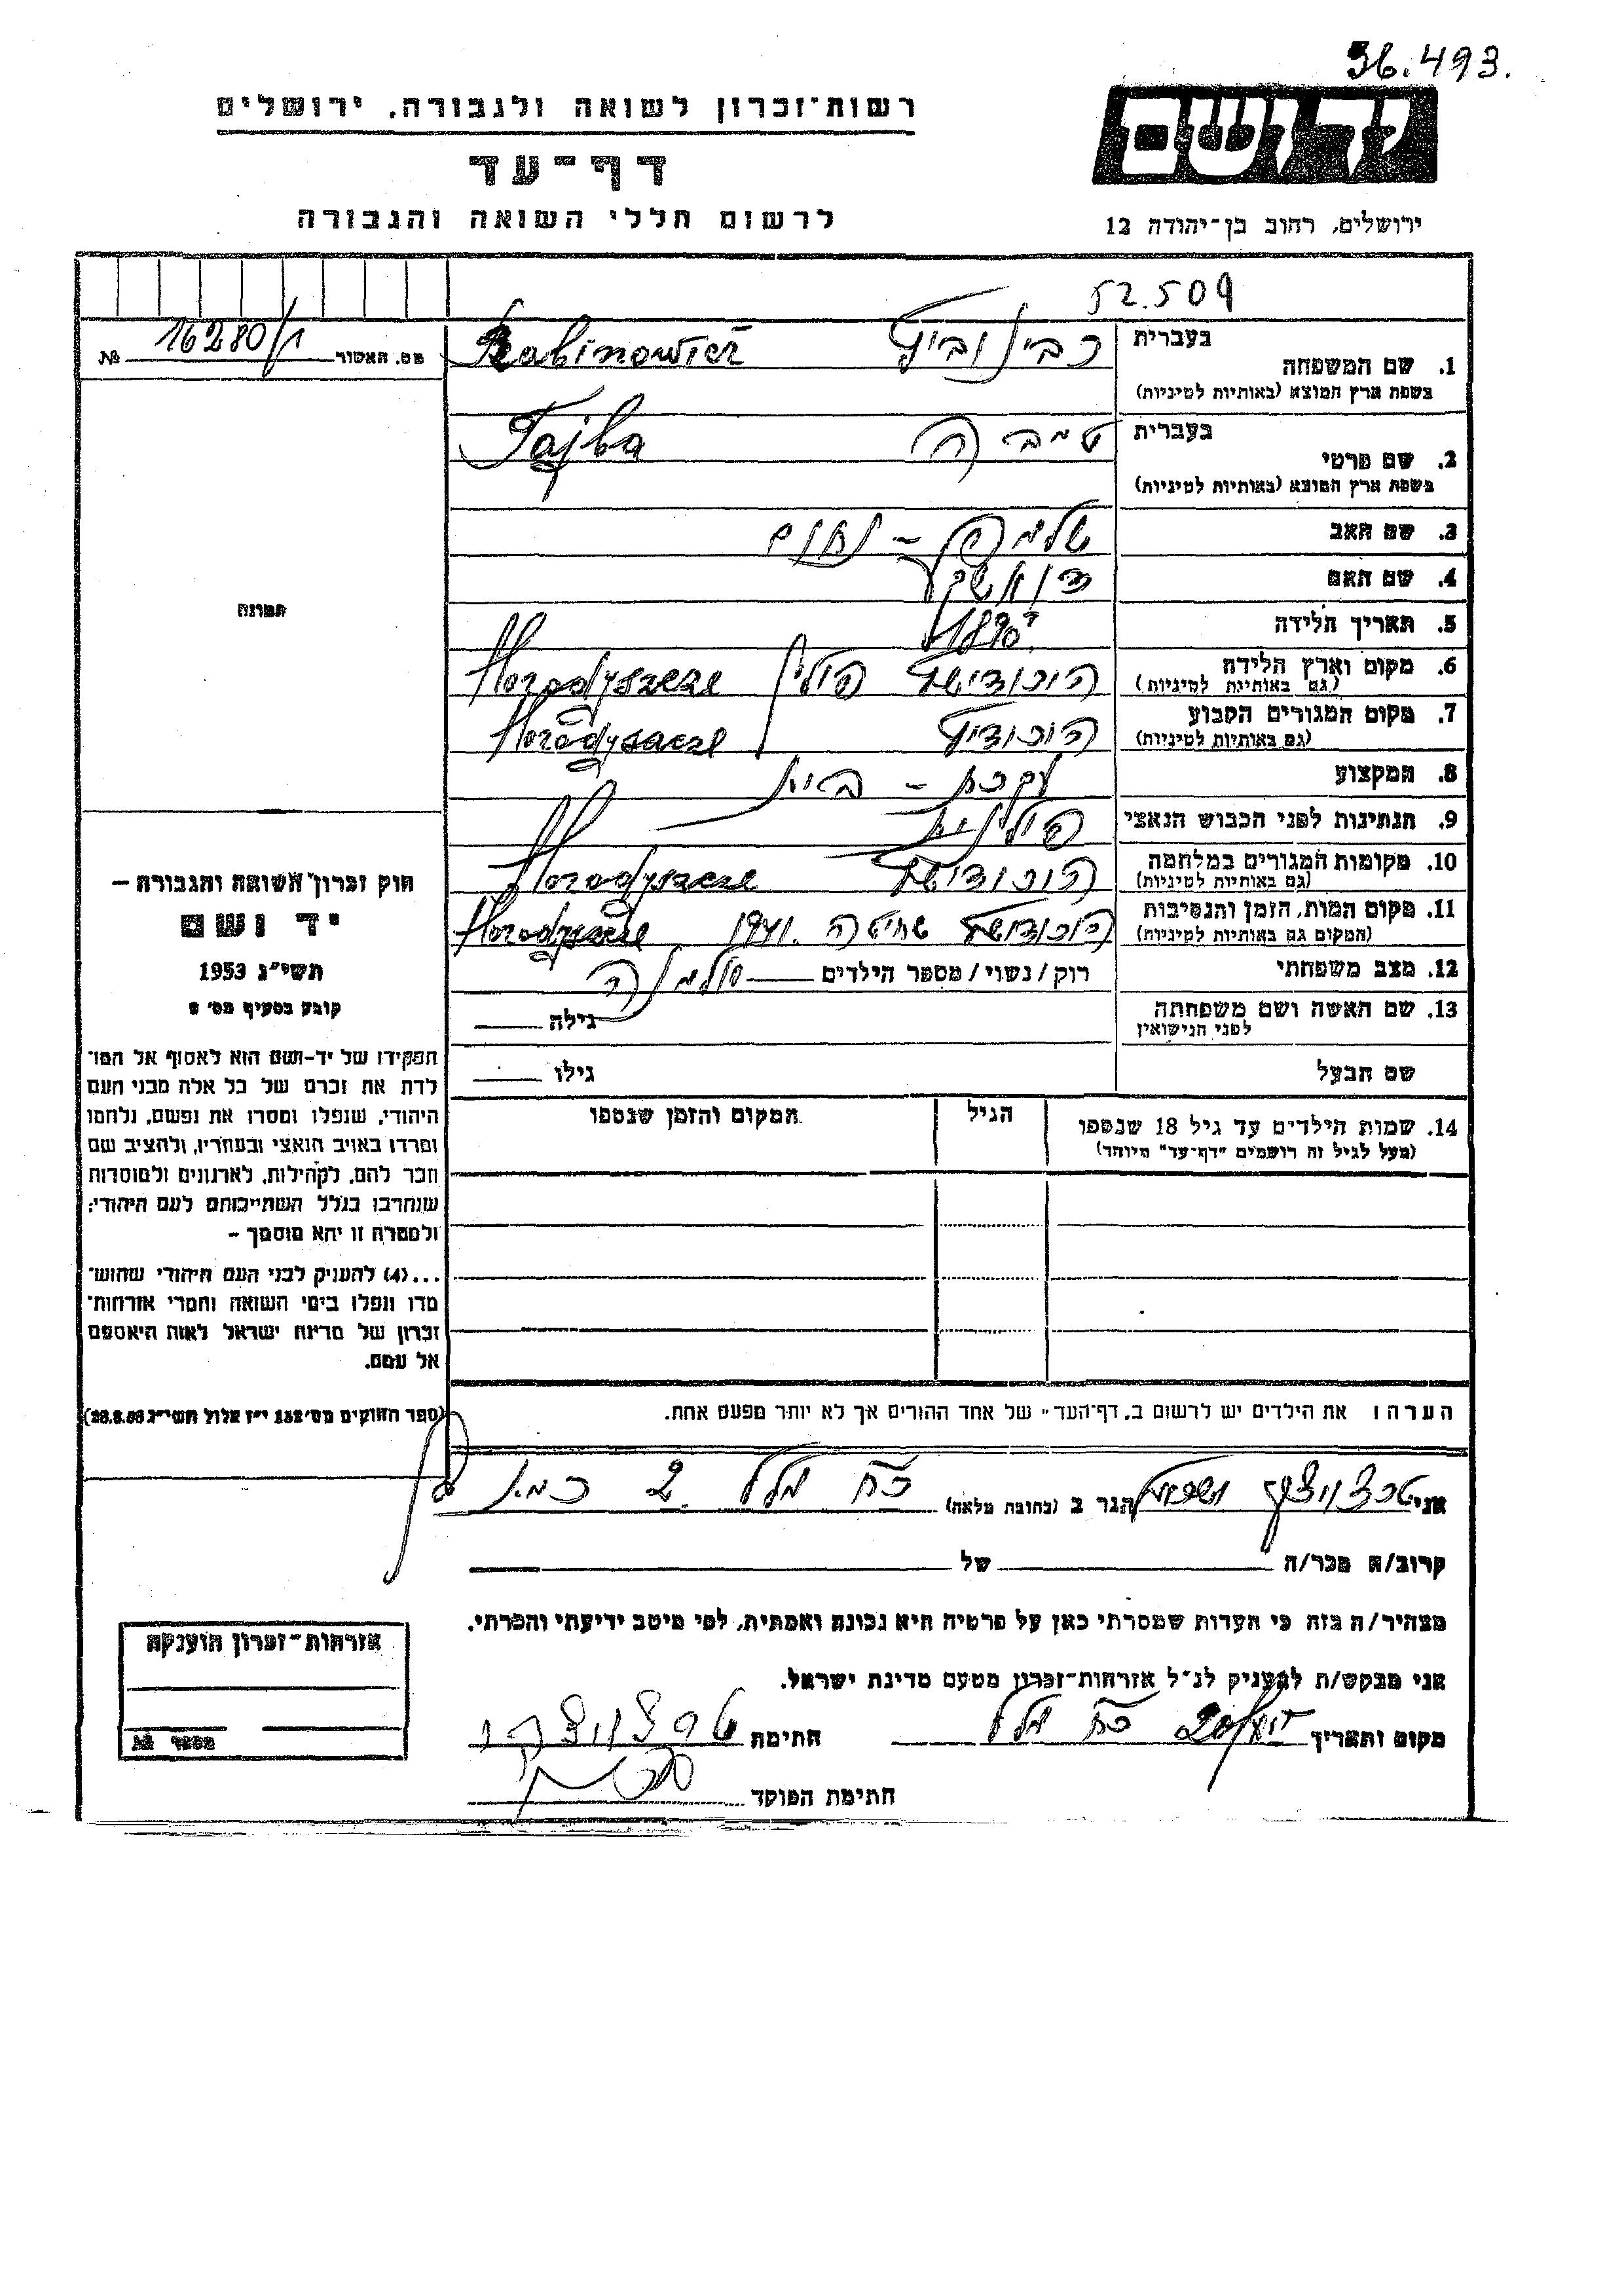 36.493.
רשות־זכרון לשואה ולגבורה, ירושלים
יד ושם
דף־עד
לרשום חללי השואה והגבורה
ירושלים, רחוב בן־יהודה 12
52.509
מס. האשור 16280/1 №
1. שם המשפחה
בעברית רבינוביץ Rabinowicz
בשפת ארץ המוצא (באותיות לטיניות)
2. שם פרטי
בעברית טיבה Tajba
בשפת ארץ המוצא (באותיות לטיניות)
3. שם האב שלמה - נחום
4. שם האם
5. תאריך הלידה 1890
6. מקום וארץ הלידה הורודישץ פולין Horodyszcze
(גם באותיות לטיניות)
7. מקום המגורים הקבוע הורודיץ Horodyszcze
(גם באותיות לטיניות)
8. המקצוע עקרת - בית
9. הנתינות לפני הכבוש הנאצי פולנית
10. מקומות המגורים במלחמה הורודישץ Horodyszcze
(גם באותיות לטיניות)
11. מקום המות, הזמן והנסיבות הורודישץ שחיטה 1941. Horodyszcze
(המקום גם באותיות לטיניות)
12. מצב משפחתי רוק/נשוי/מספר הילדים אלמנה
13. שם האשה ושם משפחתה
לפני הנישואין
גילה
שם הבעל גילו
14. שמות הילדים עד גיל 18 שנספו הגיל המקום והזמן שנספו
(מעל לגיל זה רושמים "דף־עד" מיוחד)
תמונה
חוק זכרון השואה והגבורה –
יד ושם
תשי"ג 1953
קובע בסעיף מס' 2
תפקידו של יד-ושם הוא לאסוף אל המו־
לדת את זכרם של כל אלה מבני העם
היהודי, שנפלו ומסרו את נפשם, נלחמו
ומרדו באויב הנאצי ובעוזריו, ולהציב שם
וזכר להם, לקהילות, לארגונים ולמוסדות
שנחרבו בגלל השתייכותם לעם היהודי;
ולמטרה זו יהא מוסמך –
...(4) להעניק לבני העם היהודי שהוש־
מדו ונפלו בימי השואה והמרי אזרחות־
זכרון של מדינת ישראל לאות היאספם
אל עמם.
(ספר החוקים מס' 132 י"ז אלול תשי"ג 28.8.53)
הערה: את הילדים יש לרשום ב„דף־העד" של אחד ההורים אך לא יותר מפעם אחת.
אני הגר ב (כתובת מלאה) 2
קרוב/ה מכר/ה של
מצהיר/ה בזה כי העדות שמסרתי כאן על פרטיה היא נכונה ואמתית, לפי מיטב ידיעתי והכרתי.
אני מבקש/ת להעניק לנ"ל אזרחות־זכרון מטעם מדינת ישראל.
מקום ותאריך חתימה
חתימת הפוקד
אזרחות־זכרון הוענקה
מספר №